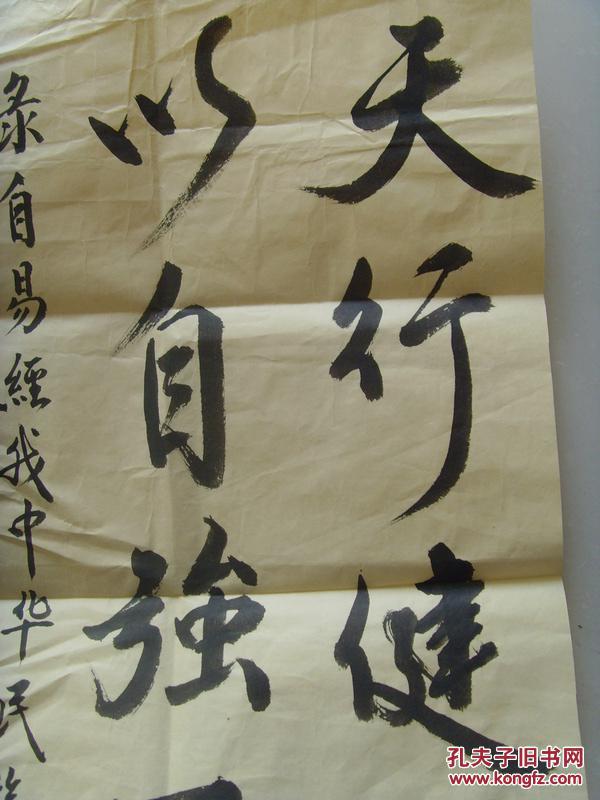 天行健
以自強
录自易經我中华民
孔夫子旧书网
www.kongfz.com